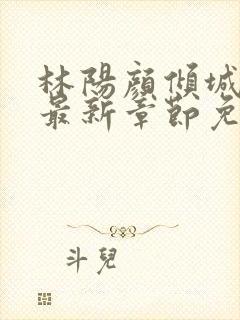 林陽顏傾城
最新章節免
斗兒